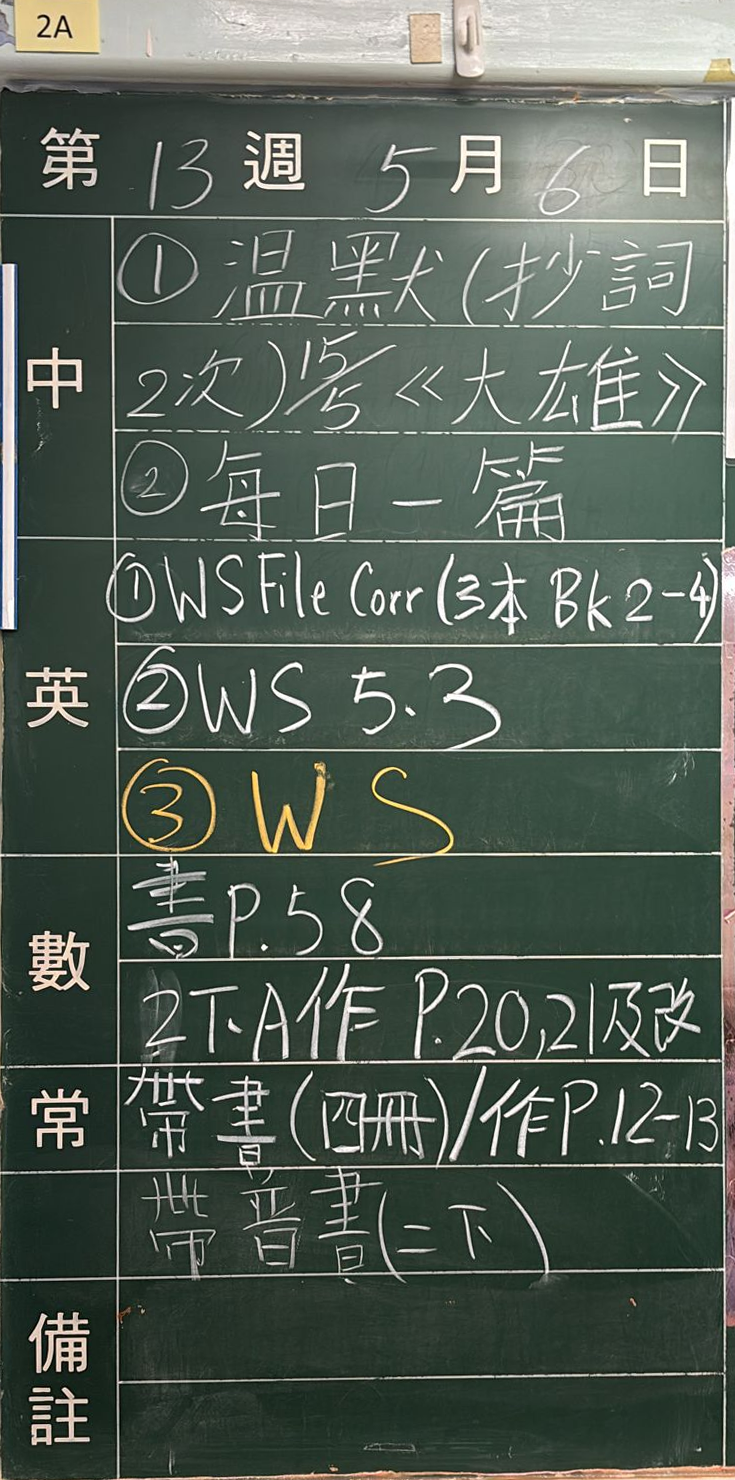 2A
第 13 週 5 月 6 日
中
① 温默(抄詞
2次) 15/5 《大雄》
② 每日一篇
英
① WS File Corr (3本 Bk 2-4)
② WS 5.3
③ WS
數
書 P.58
2下A作 P.20,21及改
常
帶書(四冊)/作P.12-13
帶音書(二下)
備註